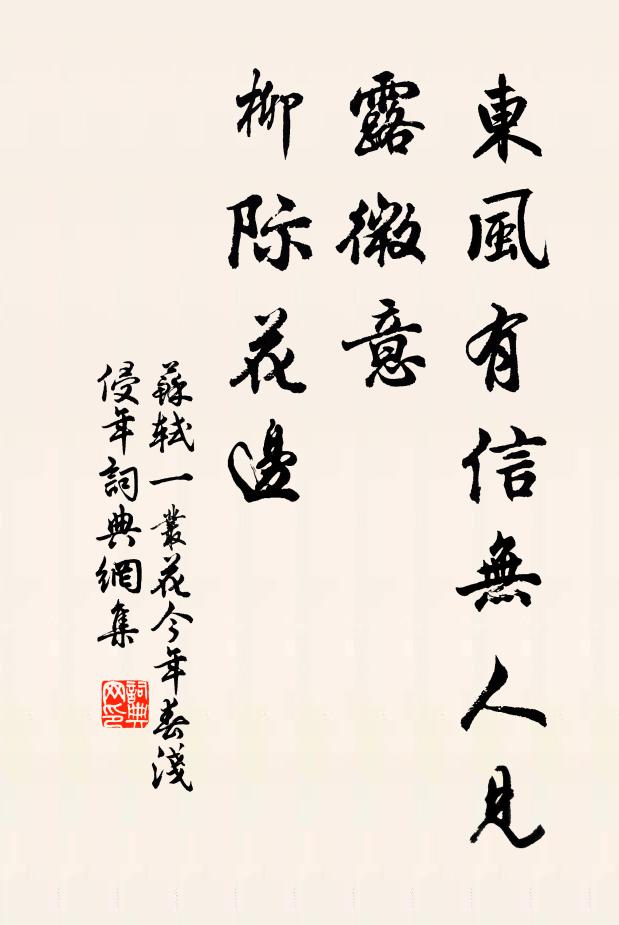 東風有信無人見
露微意
柳际花邊
蘇軾一叢花今年春淺
侵年詞典網集
詞典网印